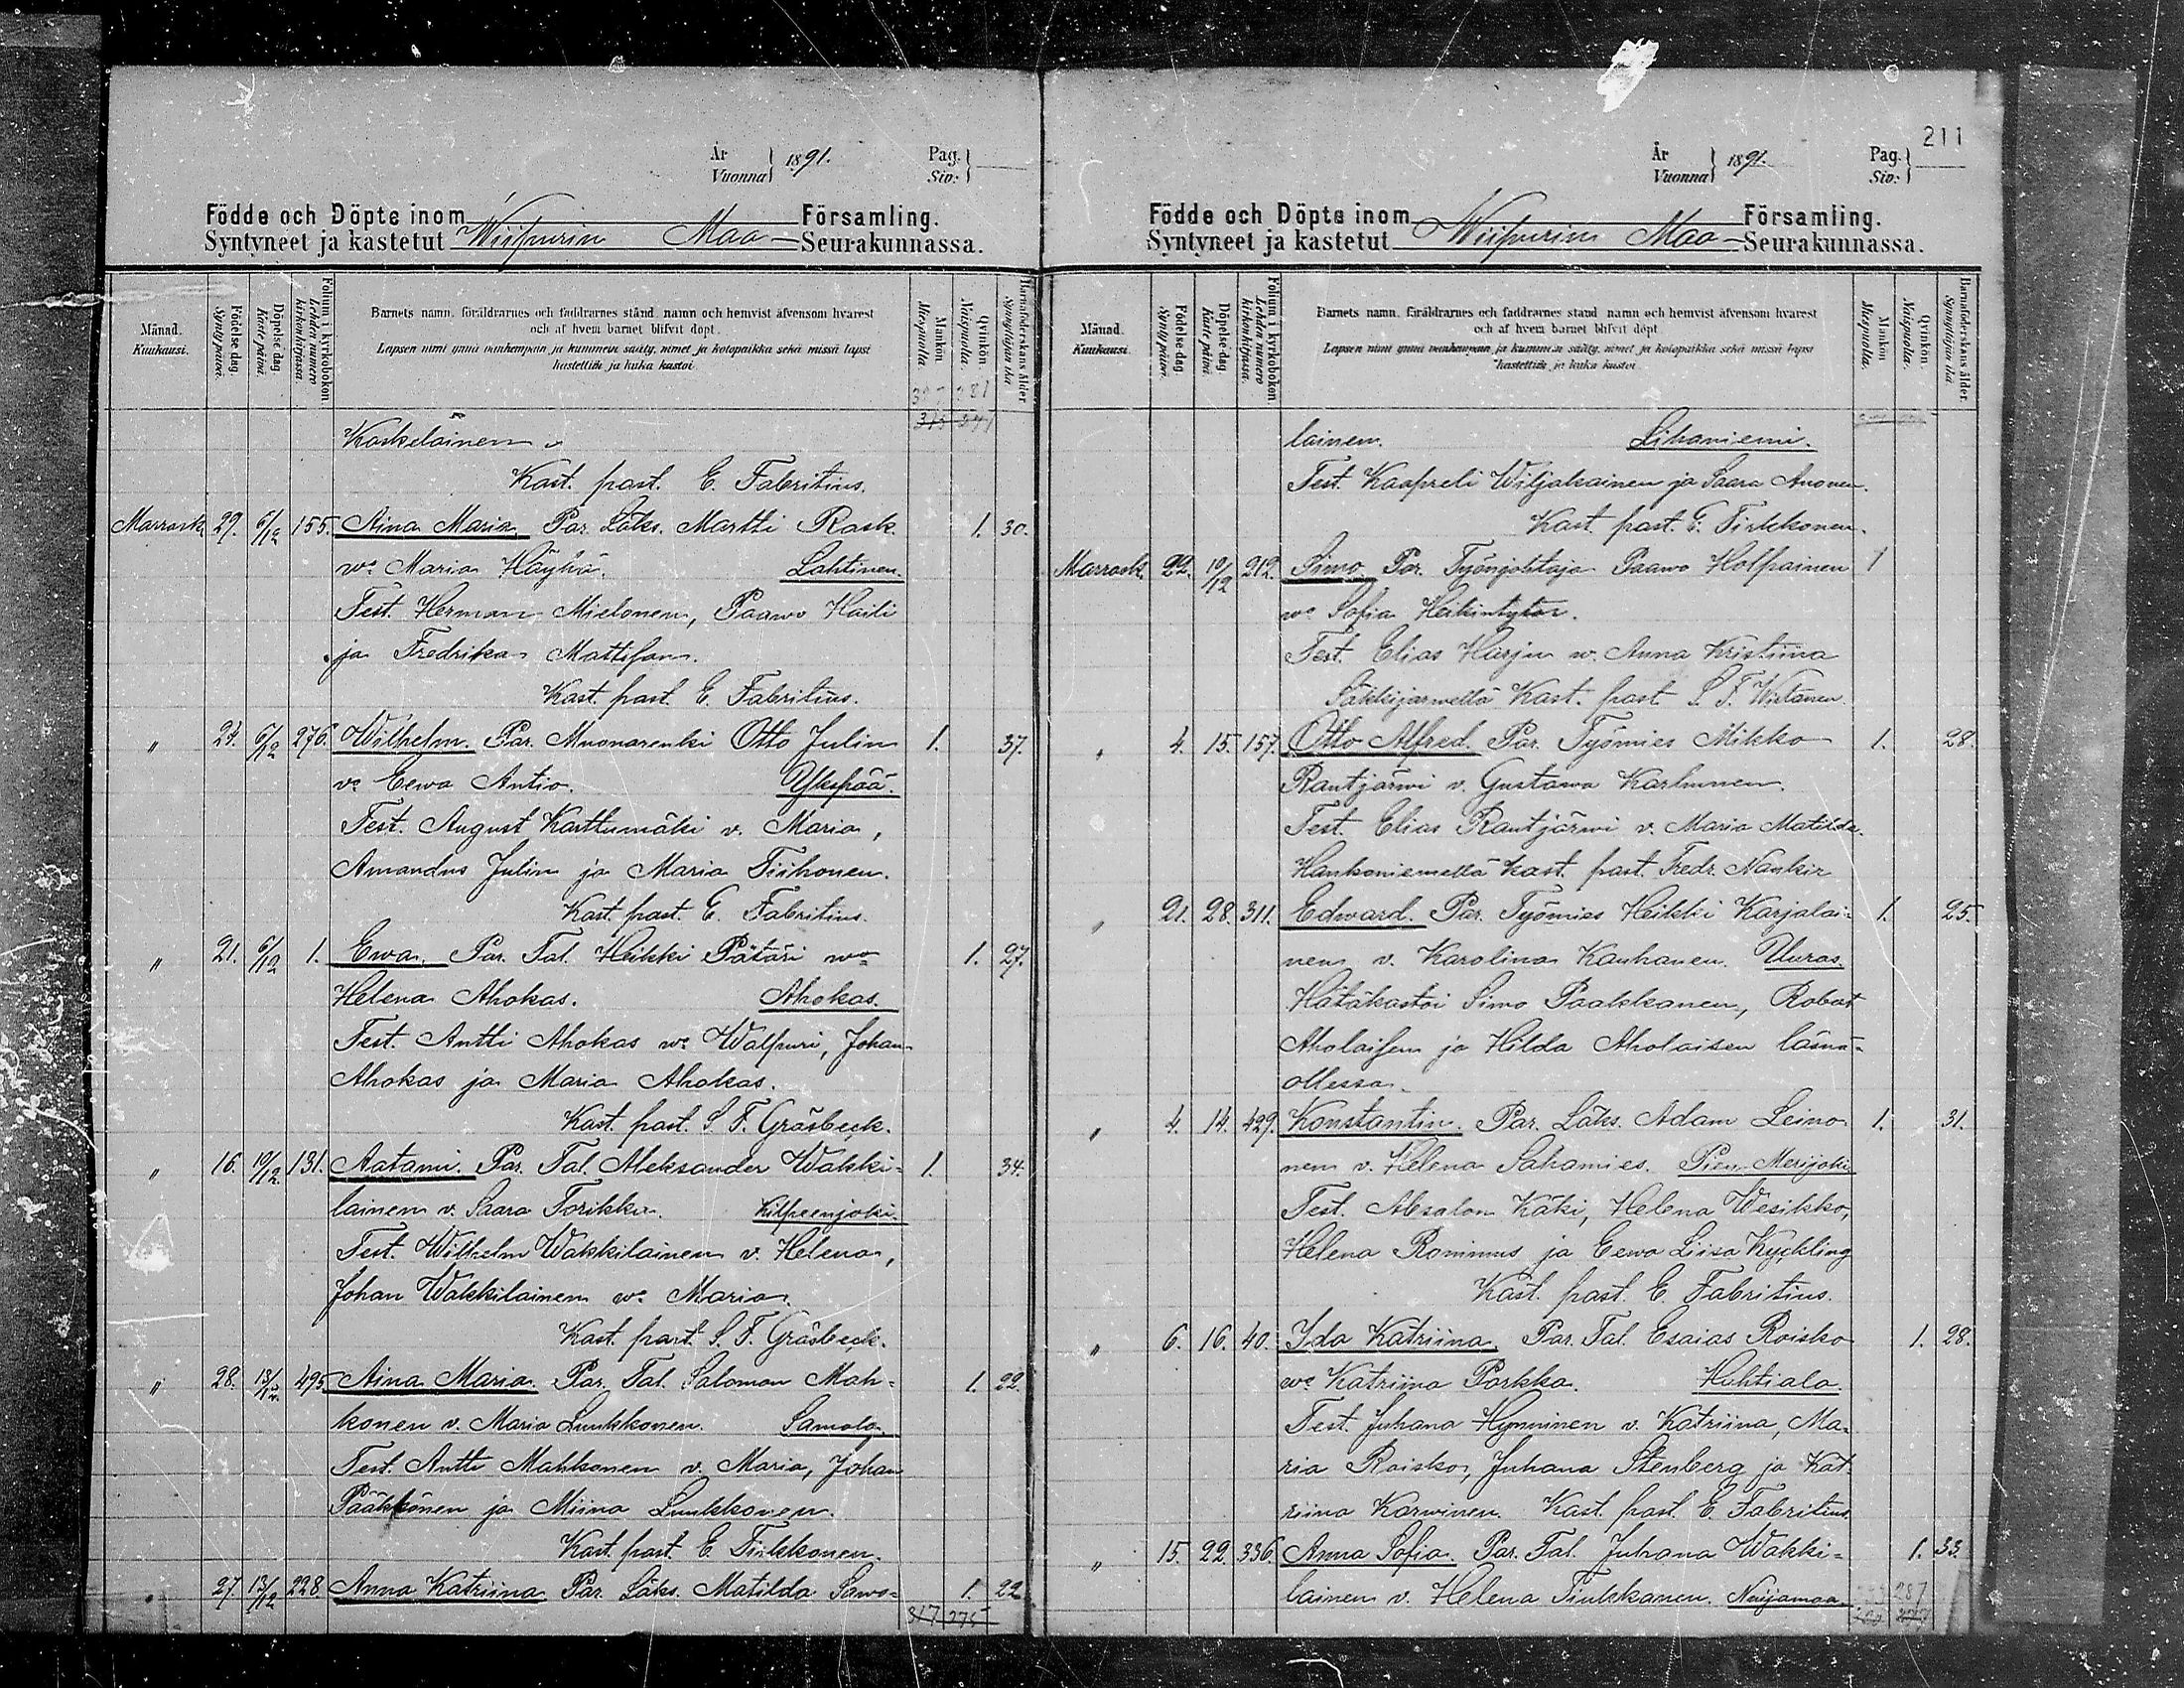 År
Vuonna } 1891. Pag.
Siv. }
Födde och Döpte inom Församling.
Syntyneet ja kastetut Wiipurin Maa- Seurakunnassa.
Månad.
Kuukausi.
Födelse dag.
Synty päivä.
Döpelse dag.
Kaste päivä.
Folium i kyrkoboken.
Lehden numero kirkonkirjassa.
Barnets namn, föräldrarnes och faddrarnes stånd, namn och hemvist äfvensom hvarest
och af hvem barnet blifvit döpt.
Lapsen nimi ynnä vanhempain ja kummien sääty, nimet ja kotopaikka sekä missä lapsi
kastettiin ja kuka kastoi.
Mankön.
Miespuolia.
Qvinkön.
Naispuolia.
Barnaföderskans ålder.
Synnyttäjän ikä.
Koskelainen
Kast. past. E. Fabritius.
Marrask. 29. 6/12 155. Aina Maria. Par. Läks. Martti Rask 1. 30.
wo Maria Häyhä. Lahtinen.
Test. Herman Mielonen, Paawo Haili
ja Fredrika Mattsson.
Kast. past. E. Fabritius.
" 24. 6/12 276. Wilhelm. Par. Muonarenki Otto Julin 1. 37.
vo Eewa Antio. Ykspää.
Test. August Karttumäki v. Maria,
Amandus Julin ja Maria Tiihonen.
Kast. past. E. Fabritius.
" 21. 6/12 1. Ewa. Par. Tal. Heikki Pätäri wo 1. 27.
Helena Ahokas. Ahokas.
Test. Antti Ahokas wo Walpuri, Johan
Ahokas ja Maria Ahokas.
Kast. past. S. F. Gräsbeck.
" 16. 10/12 131. Aatami. Par. Tal. Aleksander Wakki- 1. 34.
lainen v. Saara Torikka. Kilpeenjoki.
Test. Wilhelm Wakkilainen v. Helena,
Johan Wakkilainen wo Maria.
Kast. past. S. F. Gräsbeck.
" 28. 13/12 495 Aina Maria. Par. Tal. Salomon Mah- 1. 22.
konen v. Maria Luukkonen. Samola.
Test. Antti Mahkonen v. Maria, Johan
Pääkkönen ja Miina Luukkonen.
Kast. past. E. Tirkkonen.
" 27. 13/12 228. Anna Katriina Par. Läks. Matilda Sawo- 1. 22
317 275
211
År
Vuonna } 1891. Pag.
Siv. }
Födde och Döpte inom Församling.
Syntyneet ja kastetut Wiipurin Maa- Seurakunnassa.
Månad.
Kuukausi.
Födelse dag.
Synty päivä.
Döpelse dag.
Kaste päivä.
Folium i kyrkoboken.
Lehden numero kirkonkirjassa.
Barnets namn, föräldrarnes och faddrarnes stånd, namn och hemvist äfvensom hvarest
och af hvem barnet blifvit döpt.
Lapsen nimi ynnä vanhempain ja kummien sääty, nimet ja kotopaikka sekä missä lapsi
kastettiin ja kuka kastoi.
Mankön.
Miespuolia.
Qvinkön.
Naispuolia.
Barnaföderskans ålder.
Synnyttäjän ikä.
lainen. Lihaniemi.
Test. Kaapreli Wiljakainen ja Saara Anonen.
Kast. past. E. Tirkkonen.
Marrask. 22. 10/12 212. Simo. Par. Työnjohtaja Paawo Holpainen 1
wo Sofia Heikintytär.
Test. Elias Harju w. Anna Kristiina
Säkkijärwellä Kast. past. S. F. Wirtanen.
" 4. 15. 157. Otto Alfred. Par. Työmies Mikko 1. 28.
Rantjärwi v. Gustawa Karhunen.
Test. Elias Rantjärwi v. Maria Matilda.
Hankoniemellä kast. past. Fredr. Nankir
" 21. 28. 311. Edward. Par. Työmies Heikki Karjalai- 1. 25.
nen v. Karolina Kauhanen. Uuras.
Hätäkastoi Simo Paakkanen, Robert
Aholaisen ja Hilda Aholaisen läsnä-
ollessa.
" 4. 14. 429. Konstantin. Par. Läks. Adam Leino 1. 31.
nen v. Helena Sahamies. Pien-Merijoki
Test. Absalon Käki, Helena Wesikko,
Helena Ronimus ja Eewa Liisa Kyckling
Kast. past. E. Fabritius.
" 6. 16. 40. Ida Katriina. Par. Tal. Esaias Roisko 1. 28.
wo Katriina Porkka. Huhtiala.
Test. Juhana Hynninen v. Katriina, Ma-
ria Roisko, Juhana Stenberg ja Kat-
riina Karwinen. Kast. past. E. Fabritius
" 15. 22. 336. Anna Sofia. Par. Tal. Juhana Wakki- 1. 33.
lainen v. Helena Tiukkanen. Nuijamaa.
287